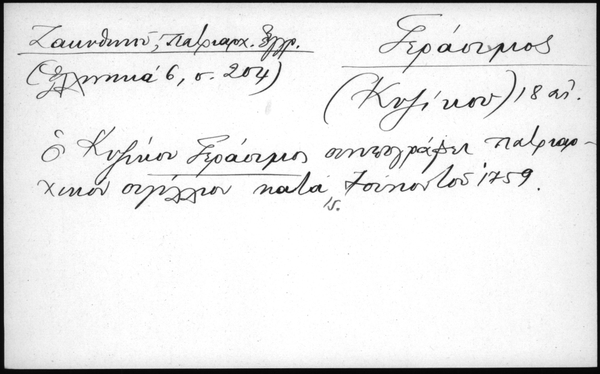 Ζακυθηνοῦ, Πατριαρχ. Ἔγγρ.
(Ἑλληνικά 6, σ. 204)
Γεράσιμος
(Κυζίκου) 18 αἰ.
Ὁ Κυζίκου Γεράσιμος συνυπογράφει πατριαρ-
χικόν σιγίλλιον κατά 1759.